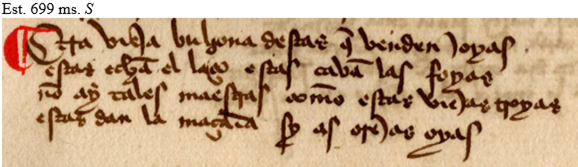 Est. 699 ms. S
Esta vieja buhona destas q̃ venden joyas
estas echã el laço estas cavã las foyas
nõ ay tales maestras com̃o estas viejas troyas
estas dan la maçada sy as orejas oyas